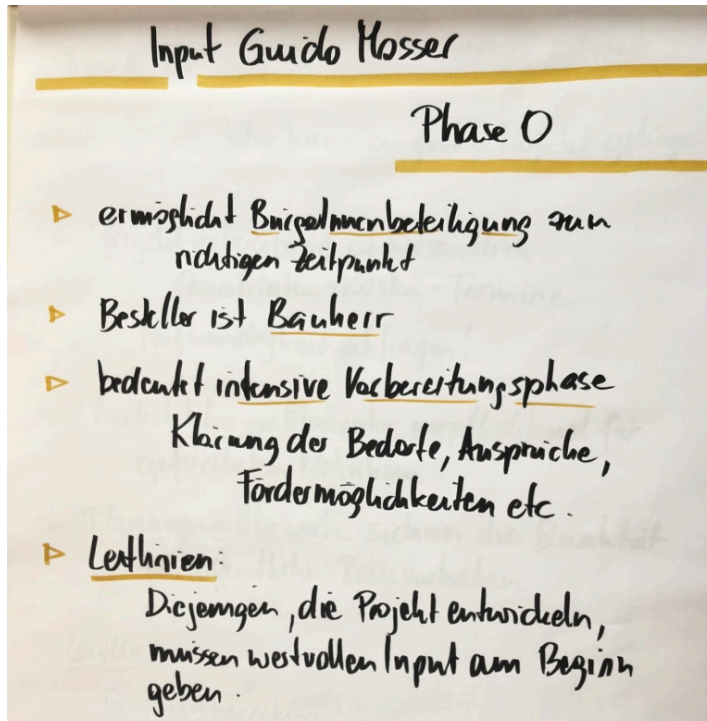 Input Guido Mosser
Phase 0
ermöglicht BürgerInnenbeteiligung zum
richtigen Zeitpunkt
Besteller ist Bauherr
bedeutet intensive Vorbereitungsphase
Klärung der Bedarfe, Ansprüche,
Fördermöglichkeiten etc.
Leitlinien:
Diejenigen, die Projekt entwickeln,
müssen wertvollen Input am Beginn
geben.